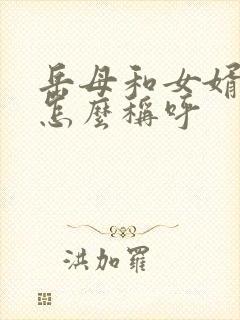 岳母和女婿
怎麼稱呼
洪加羅